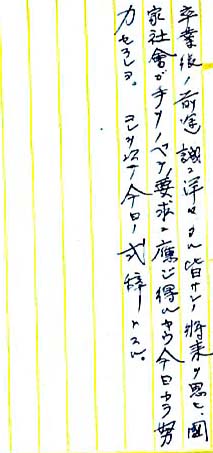 卒業後ノ前途誠ニ洋々タル皆サン、将来ヲ思ヒ、國
家社會ガ手ヲノベテ要求ニ應ジ得ルヤウ今日カラ努
力セラレヨ。コレヲ以テ今日ノ式辞トスル。